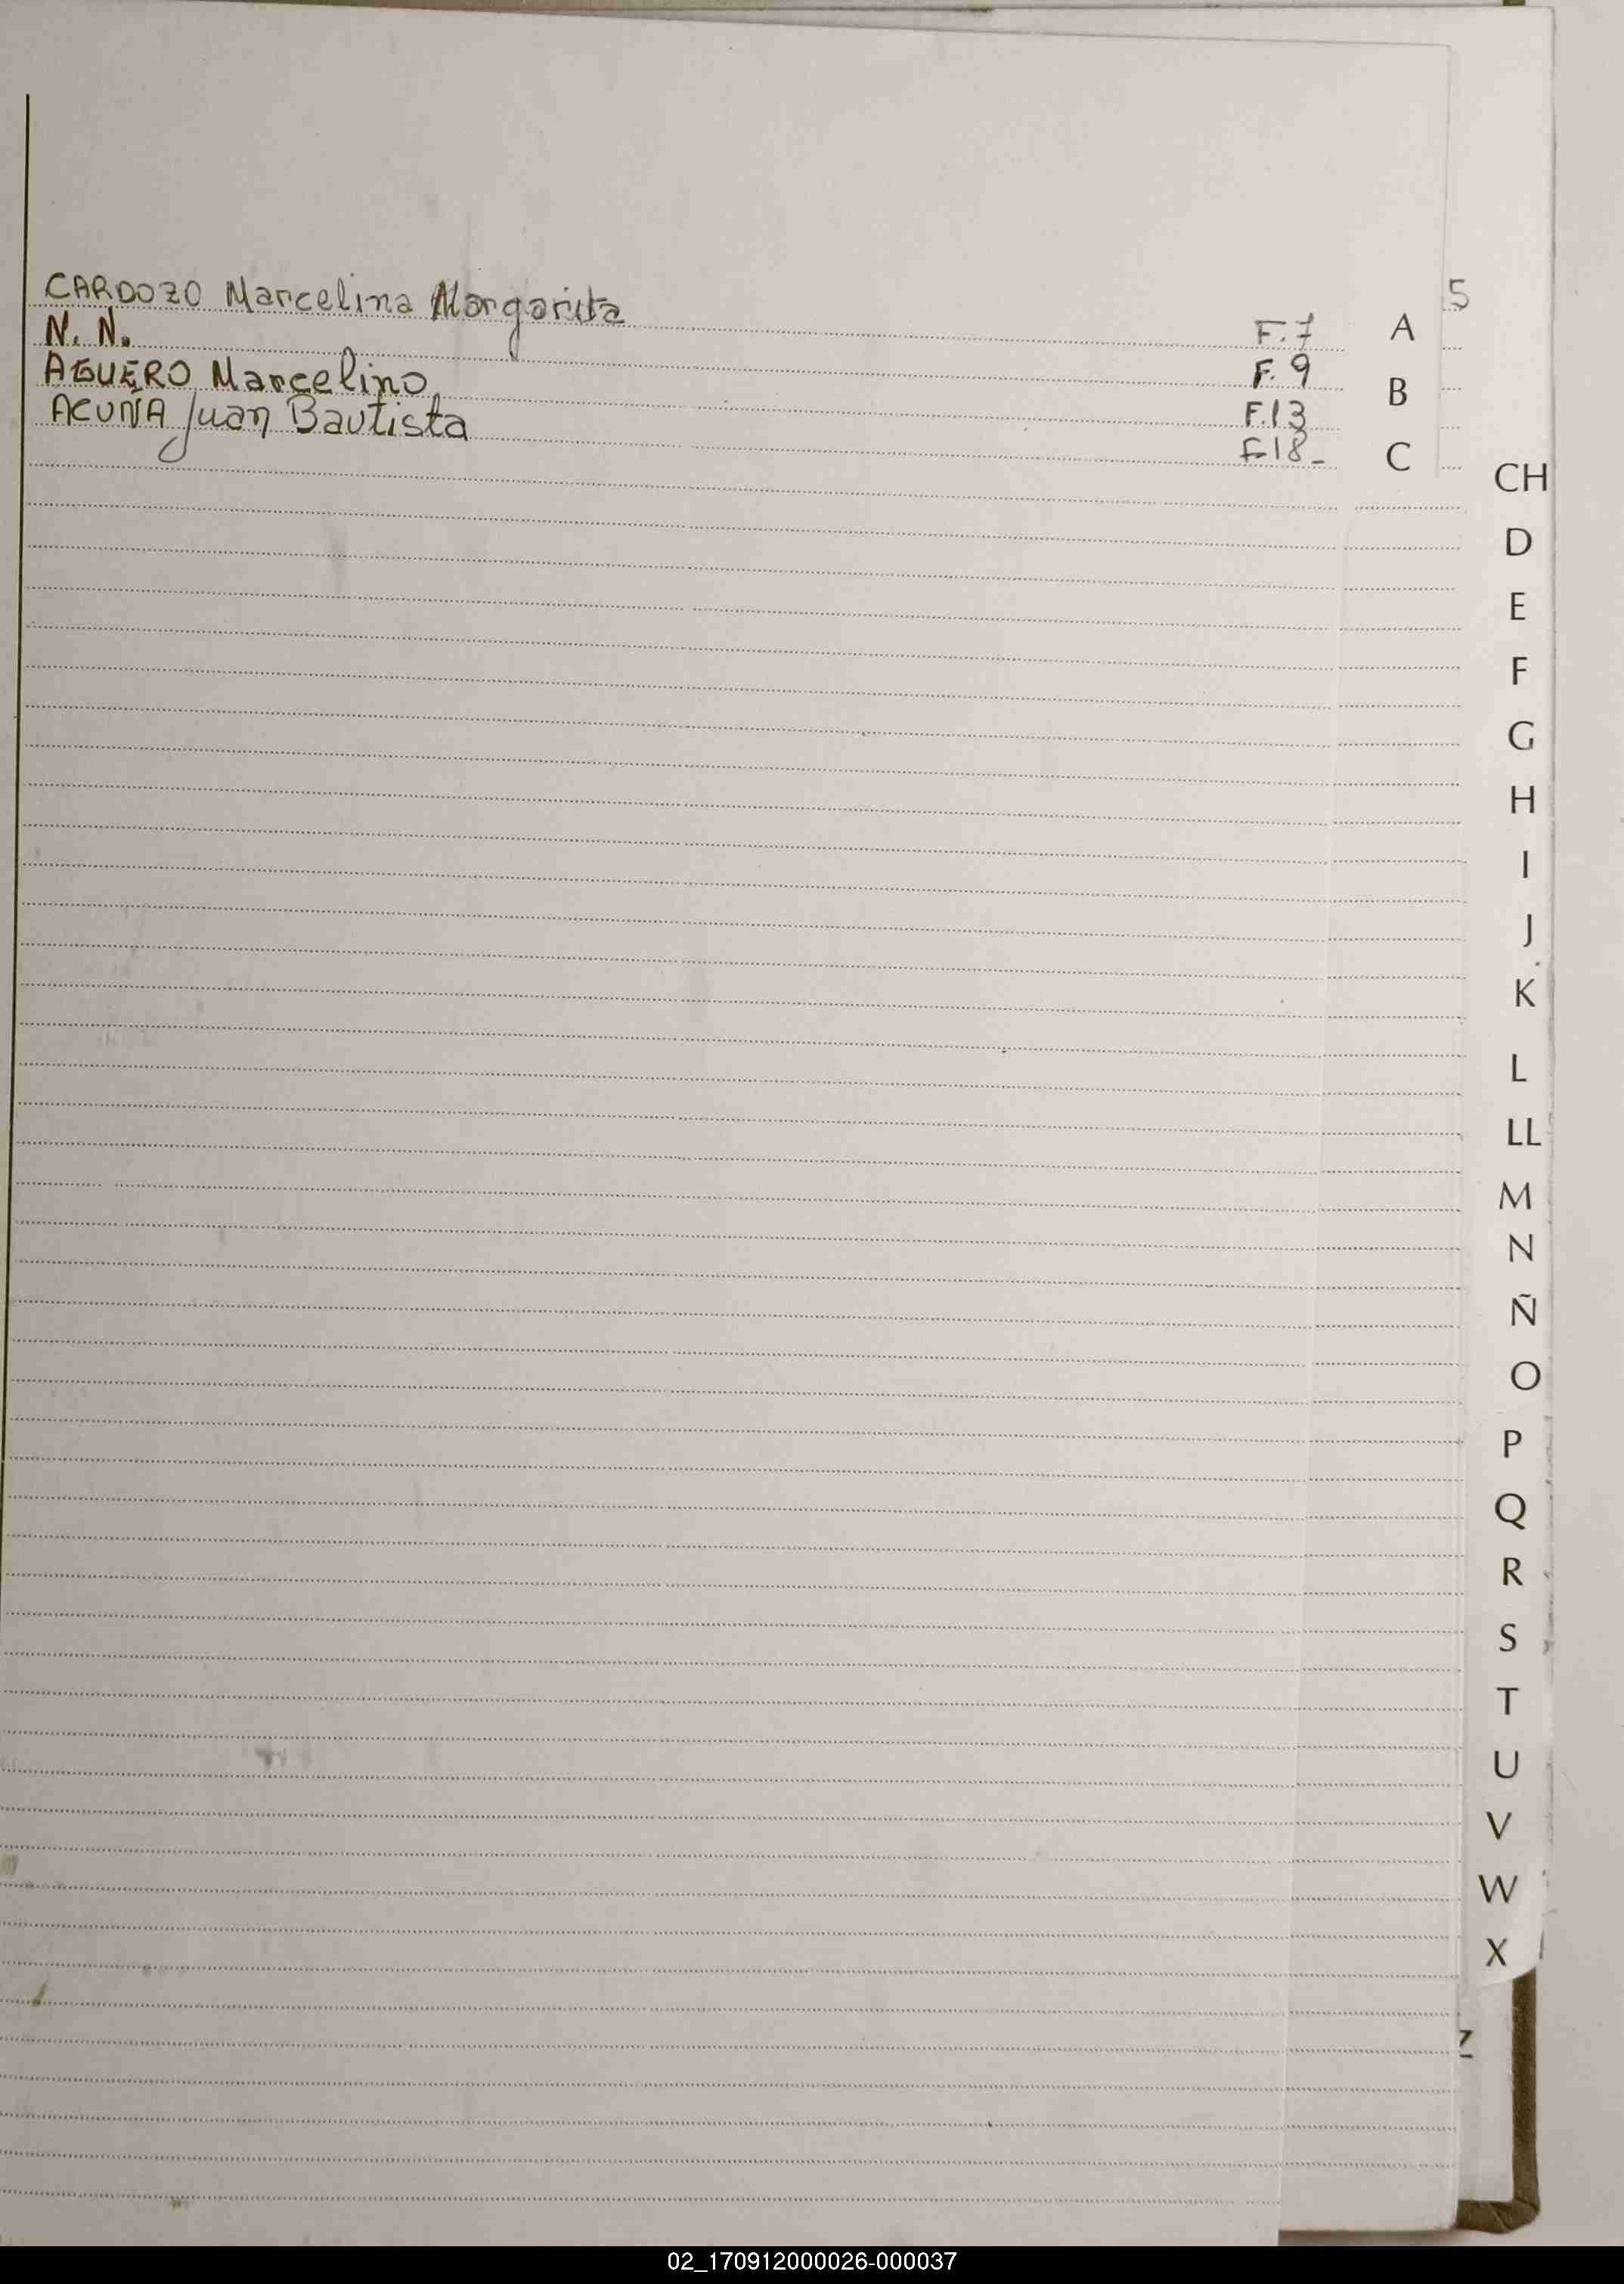 CARDOZO Marcelina Margarita F.7
N. N. F. 9
AGUERO Marcelino F.13
ACUÑA Juan Bautista F-18-
5
A
B
C
CH
D
E
F
G
H
I
J
K
L
LL
M
N
Ñ
O
P
Q
R
S
T
U
V
W
X
Z
02_170912000026-000037